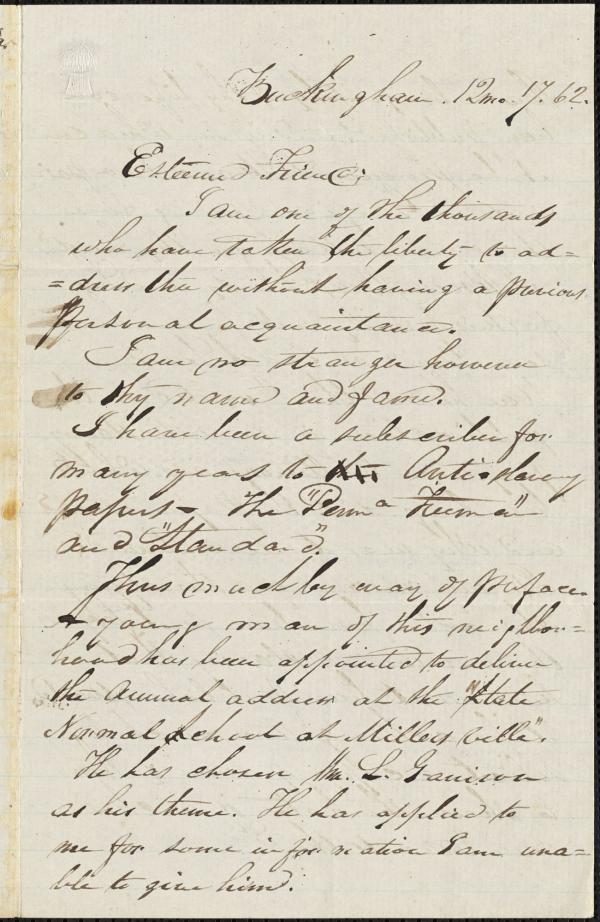 Buckingham. 12mo. 17. 62.
Esteemed Friend;
I am one of the thousands
who have taken the liberty to ad=
=dress thee without having a previous
personal acquaintance.
I am no stranger however
to thy name and fame.
I have been a subscriber for
many years to Anti-slavery
papers - the "Penna Freeman"
and "Standard."
Thus much by way of preface.
A young man of this neighbor=
hood has been appointed to deliver
the annual address at the "State
Normal School at Millersville".
He has chosen Wm. L. Garrison
as his theme. He has applied to
me for some information I am una=
ble to give him.